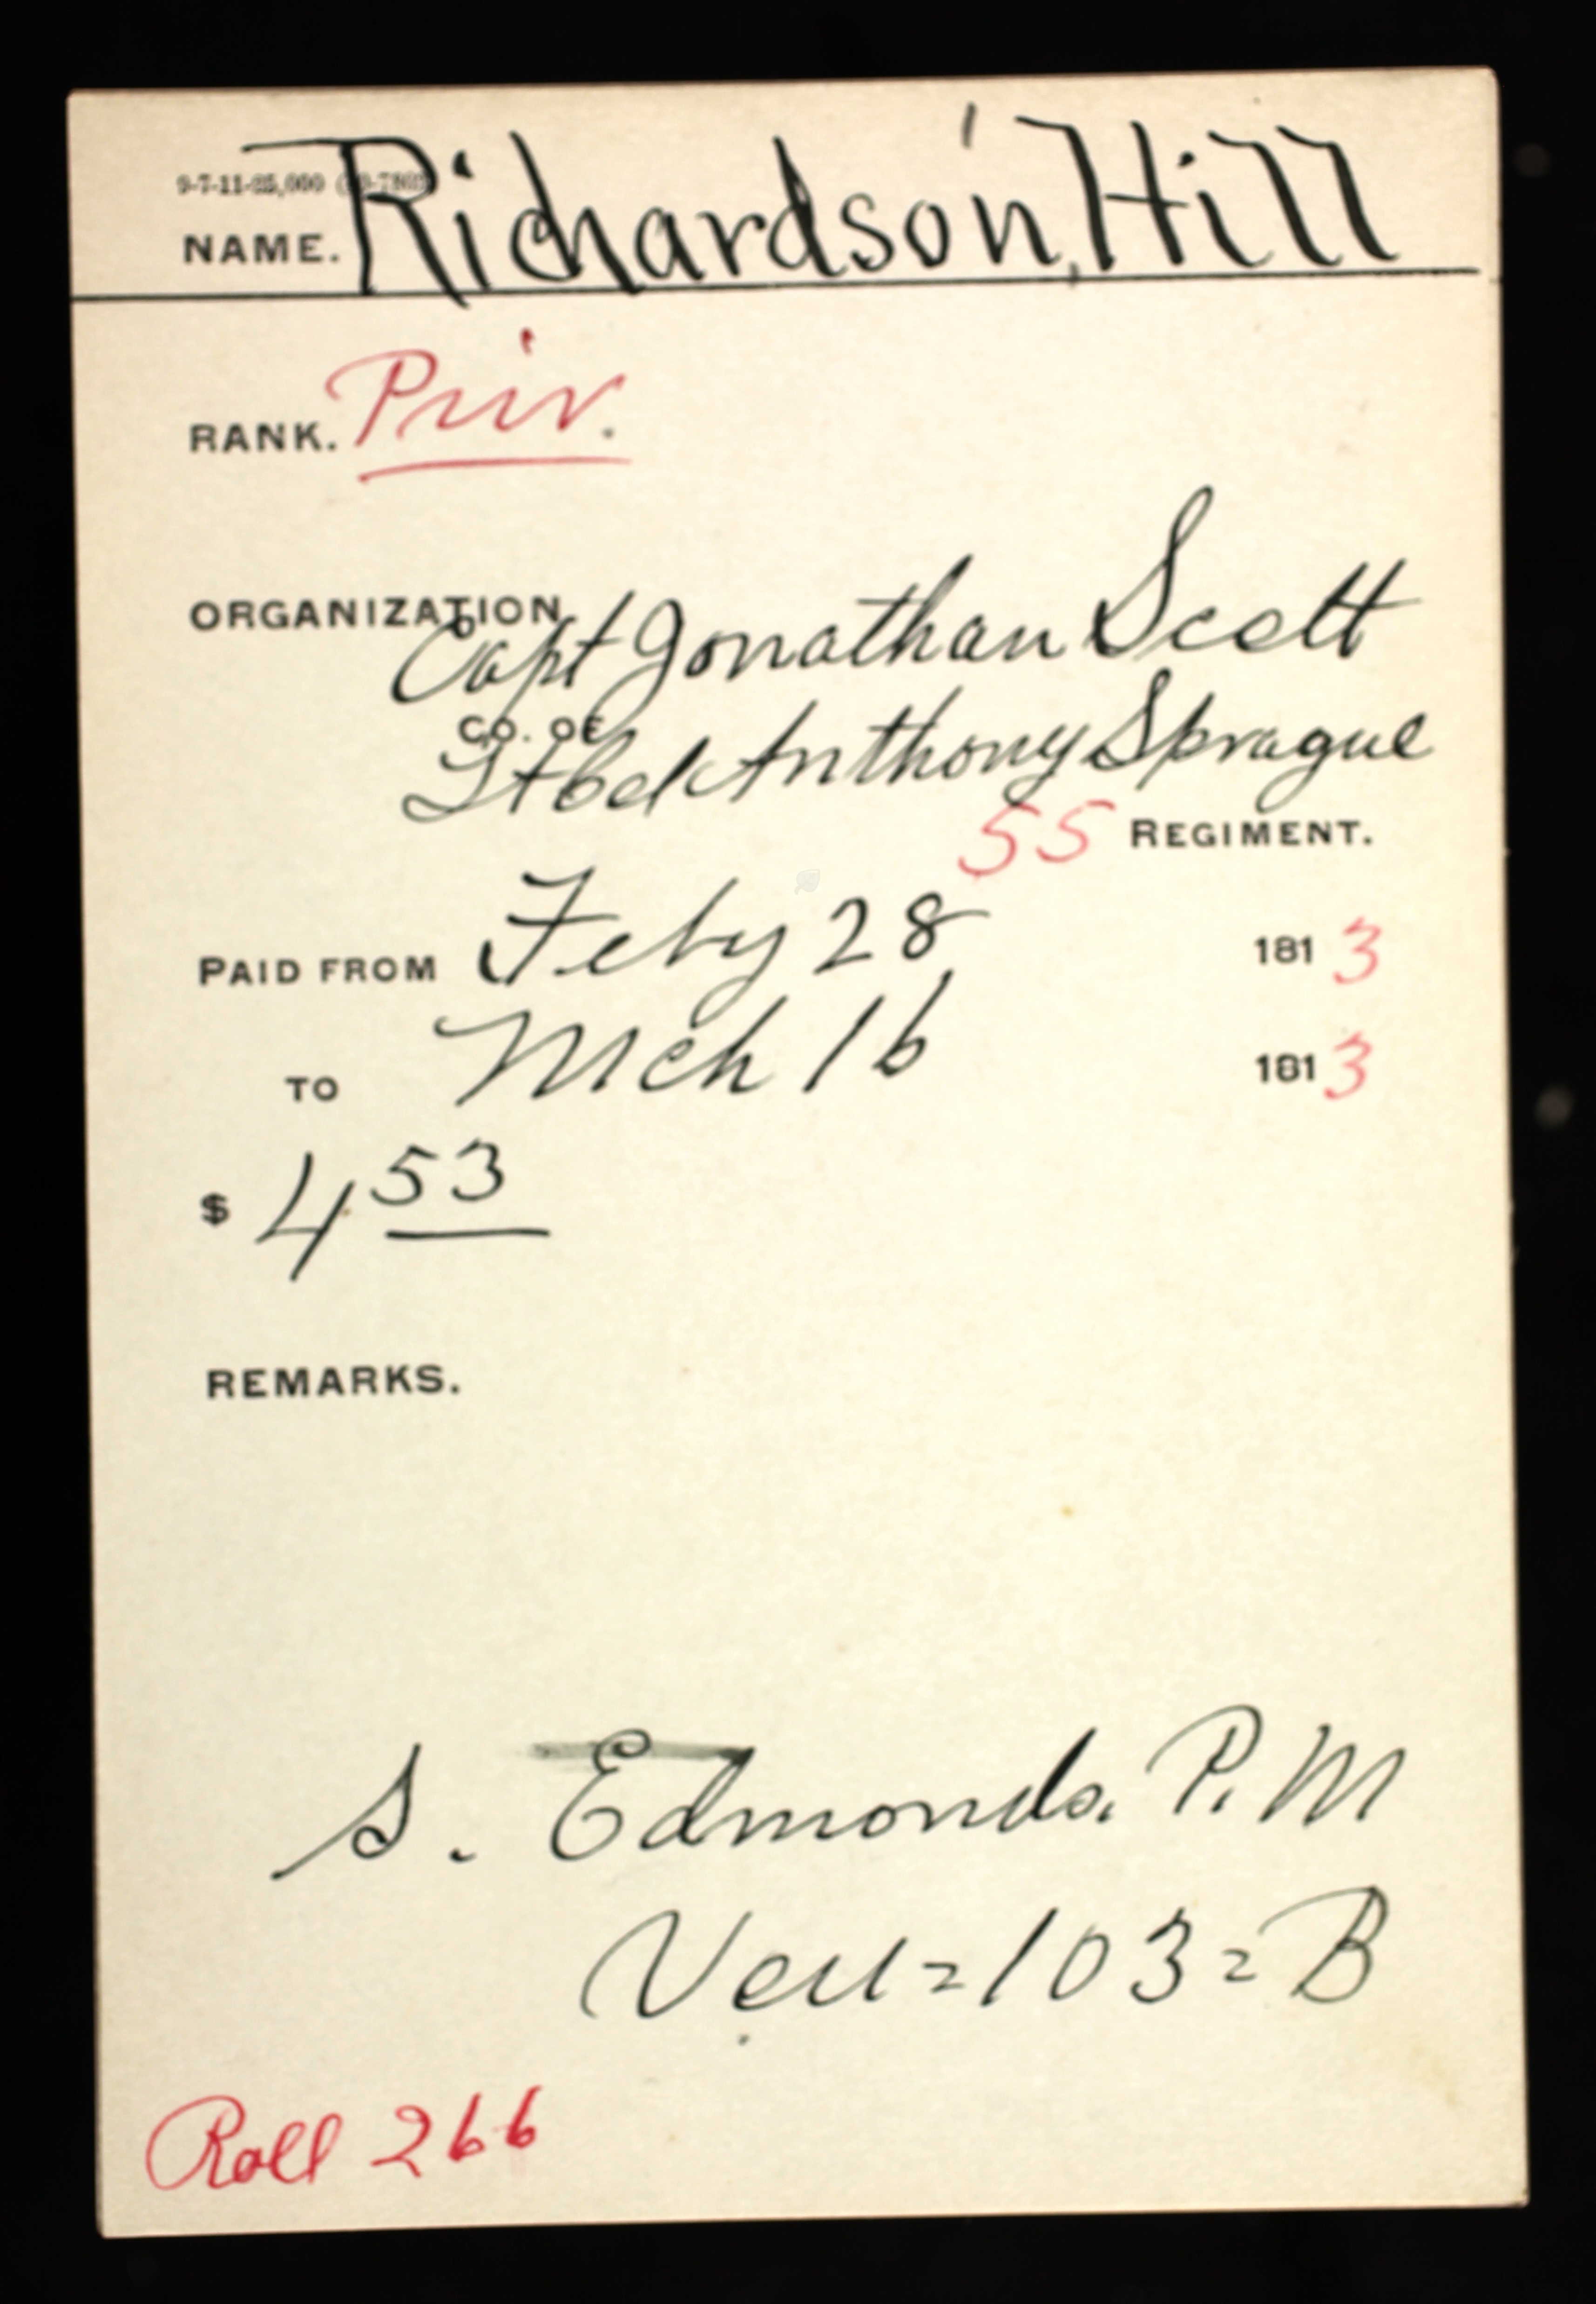 9-7-11-25,000
NAME. Richardson, Hill
RANK. Priv.
ORGANIZATION
Capt Jonathan Scott
CO. OF
Lt Col Anthony Sprague
55 REGIMENT.
PAID FROM Feby 28 1813
TO Mch 16 1813
$ 4 53
REMARKS.
S. Edmonds. P. M
Vou=103=B
Roll 266